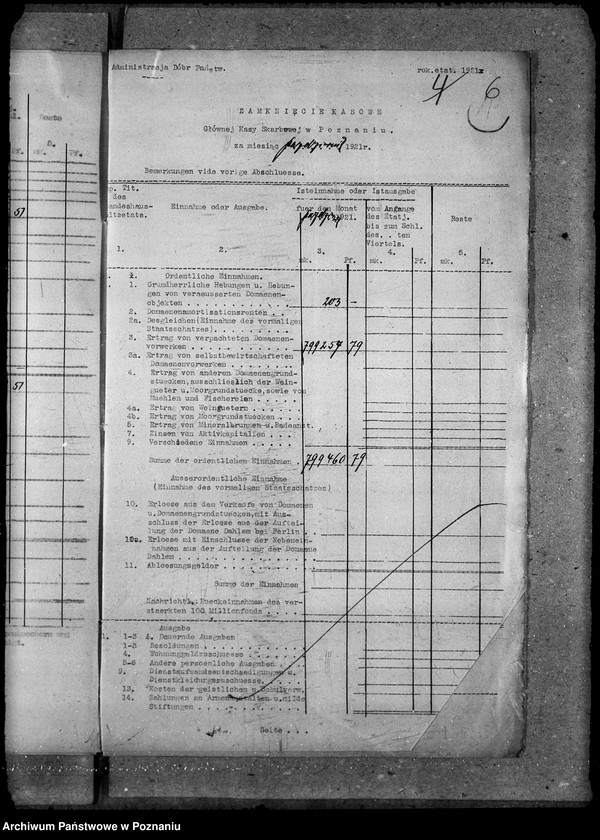 Administracja Dóbr Państw.
rok.etat. 1921
4 6
ZAMKNIĘCIE KASOWE
Głównej Kasy Skarbowej w Poznaniu.
za miesiąc październik 1921r.
Bemerkungen vide vorige Abschluesse.
Tit. des Landeshaus-haltsetats.
Einnahme oder Ausgabe.
Isteinnahme oder Istausgabe
fuer den Monat 1921.
von Anfange des Etatj. bis zum Schl. des. . ten Viertels.
Reste
1. 2. 3. 4. 5.
mk. Pf. mk. Pf. mk. Pf.
Ordentliche Einnahmen.
1. Grundherrliche Hebungen u. Hebun-
gen von veraeusserten Domaenen-
objekten . . . . . . . . . . . 203 —
2. Domaenenamortisationsrenten . .
2a. Desgleichen(Einnahme des vormaligen
Staatsschatzes) . . . . . . . . .
3. Ertrag von verpachteten Domaenen-
vorwerken . . . . . . . . . . . 799257 79
3a. Ertrag von selbstbewirtschafteten
Domaenenvorwerken . . . . . . . .
4. Ertrag von anderen Domaenengrund-
stuecken, ausschließlich der Wein-
gueter u. Moorgrundstuecke, sowie von
Muehlen und Fischereien . . . . .
4a. Ertrag von Weinguetern . . . . . .
4b. Ertrag von Moorgrundstuecken . . . .
5. Ertrag von Mineralbrunnen u. Badeanst.
7. Zinsen von Aktivkapitalien . . . .
9. Verschiedene Einnahmen . . . . .
Summe der ordentlichen Einnahmen . 799460 79
Ausserordentliche Einnahme
(Einnahme des vormaligen Staatsschatzes)
10. Erloese aus dem Verkaufe von Domaenen
u. Domaenengrundstuecken, mit Aus-
schluss der Erloese aus der Auftei-
lung der Domaene Dahlem bei Berlin . .
10a. Erloese mit Einschlusse der Nebenein-
nahmen aus der Aufteilung der Domaene
Dahlem . . . . . . . . . . . . . . .
11. Abloesungsgelder . . . . . . . . . .
Summe der Einnahmen
Nachrichtl.: Rueckeinnahmen des ver-
staerkten 100 Millionfonds . . . .
Ausgabe
1. 1-3 A. Dauernde Ausgaben
1-3 Besoldungen . . . . . . . . . . .
4. Wohnungsgeldzuschuesse . . . . . .
5-8 Andere persoenliche Ausgaben . . .
9. Dienstaufwandsentschaedigungen u.
Dienstkleidungszuschuesse. . . . .
13. Kosten der geistlichen u. Schulverw.
14. Zahlungen an Armenanstalten u. milde
Stiftungen . . . . . . . . . . . .
Seite . . .
Reste
5.
Pf. Pf.
51
51
Archiwum Państwowe w Poznaniu